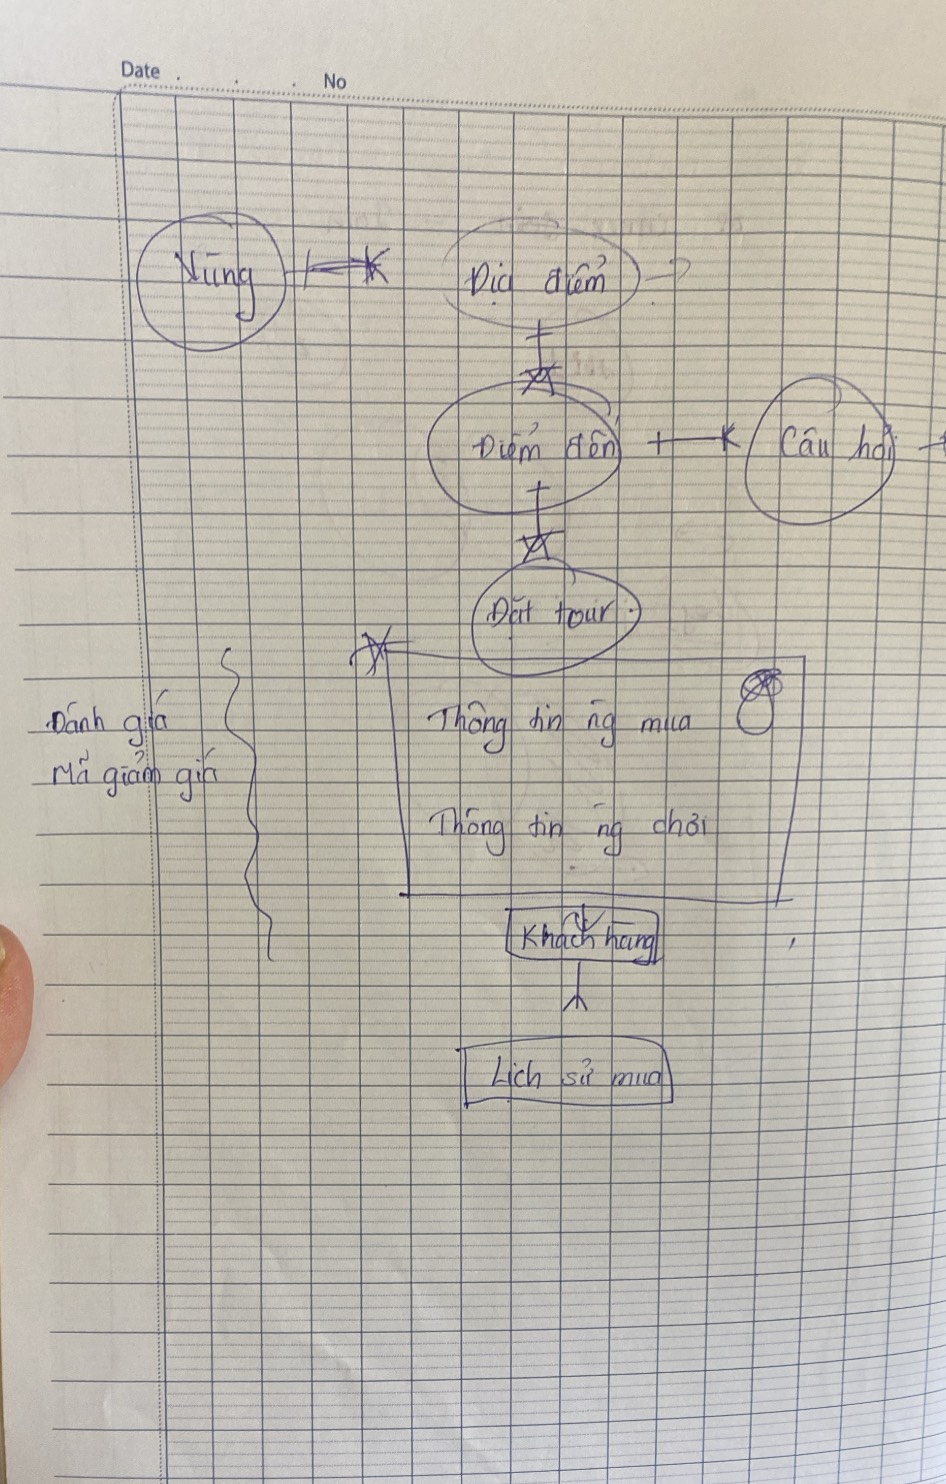 Date . . . No
Vùng
Địa điểm
Điểm đến
Câu hỏi
Đặt tour
Đánh giá
Mã giảm giá
Thông tin ng mua
Thông tin ng chơi
Khách hàng
Lịch sử mua